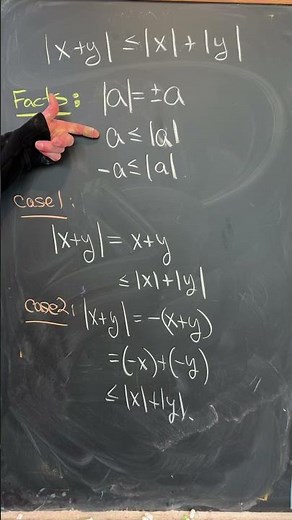 |x+y| ≤ |x| + |y|
Facts: |a| = ±a
a ≤ |a|
-a ≤ |a|.
Case1:
|x+y| = x+y
≤ |x| + |y|
Case2: |x+y| = -(x+y)
= (-x) + (-y)
≤ |x| + |y|.